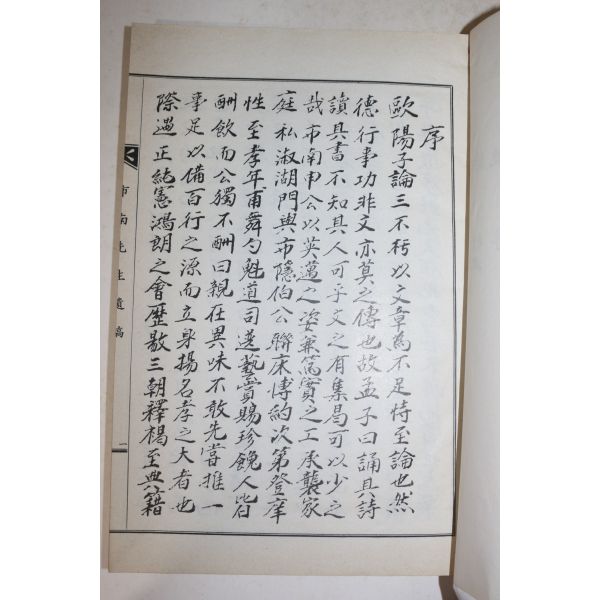 序
歐陽子論三不朽以文章為不足恃至論也然
德行事功非文亦莫之傳也故孟子曰誦其詩
讀其書不知其人可乎文之有集曷可以少之
哉市南申公以英邁之姿兼篤實之工承襲家
庭私淑湖門與市隱伯公聯床博約次第登庠
性至孝年甫舞勺魁道司選藝賞賜珍饌人皆
酬飲而公獨不酬曰親在異味不敢先嘗推一
事足以備百行之源而立身揚名孝之大者也
際遇正純憲鴻朗之會歷敭三朝釋褐至典籍
市南先生遺稿
一